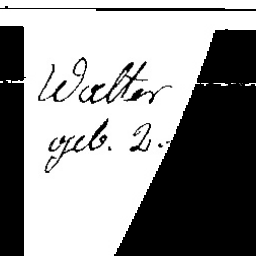 Walter
geb. 2.